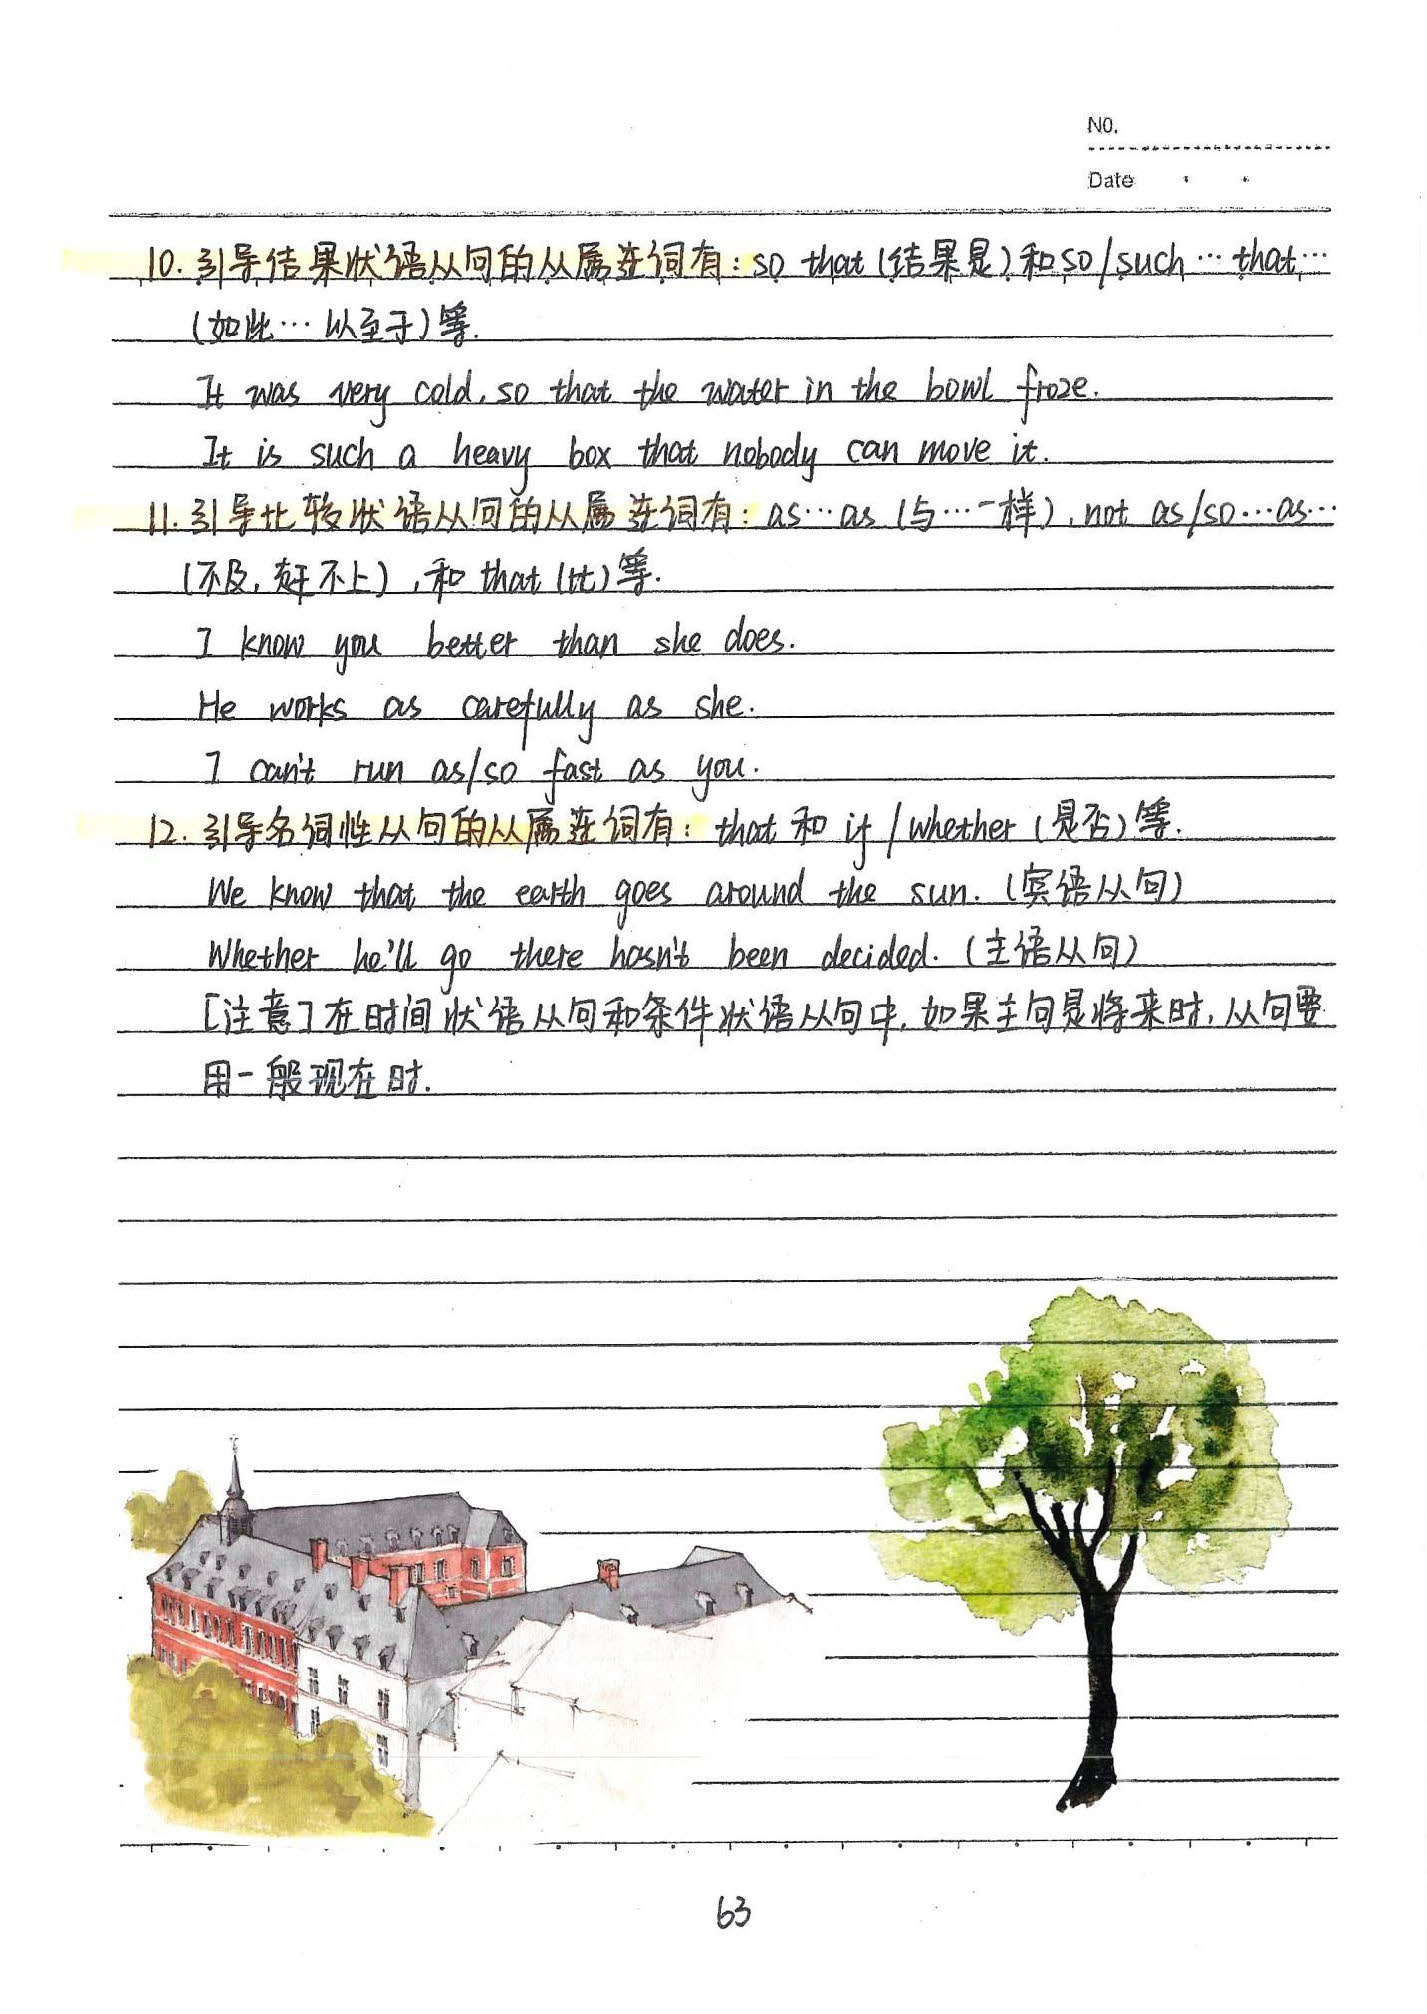 NO.
Date
10. 引导结果状语从句的从属连词有：so that (结果是) 和 so/such … that …
(如此… 以至于) 等.
It was very cold, so that the water in the bowl froze.
It is such a heavy box that nobody can move it.
11. 引导比较状语从句的从属连词有：as…as (与…一样), not as/so…as…
(不及, 赶不上), 和 that (比) 等.
I know you better than she does.
He works as carefully as she.
I can't run as/so fast as you.
12. 引导名词性从句的从属连词有：that 和 if / whether (是否) 等.
We know that the earth goes around the sun. (宾语从句)
Whether he'll go there hasn't been decided. (主语从句)
[注意] 在时间状语从句和条件状语从句中, 如果主句是将来时, 从句要
用一般现在时.
63